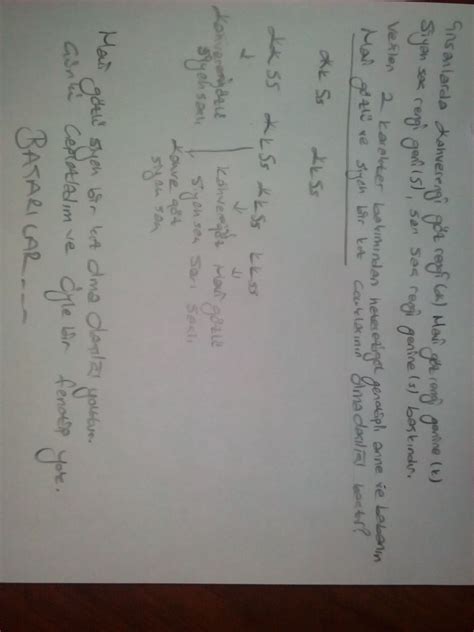 İnsanlarda kahverengi göz rengi (K) Mavi göz rengi genine (k)
Siyah saç rengi geni (S), sarı saç rengi genine (s) baskındır.
Verilen 2 karakter bakımından heterozigot genotipli anne ve babanın
Mavi gözlü ve siyah bir kız çocuklarının olma olasılığı kaçtır?
Kk Ss Kk Ss
KK SS Kk Ss Kk Ss kk ss
Kahverengi gözlü Kahverengi Mavi gözlü
siyah saçlı siyah saç sarı saçlı
Kahve göz
siyah saç
Mavi gözlü siyah bir kız olma olasılığı yoktur.
Çünkü çaprazladım ve öyle bir fenotip yok.
BAŞARILAR...